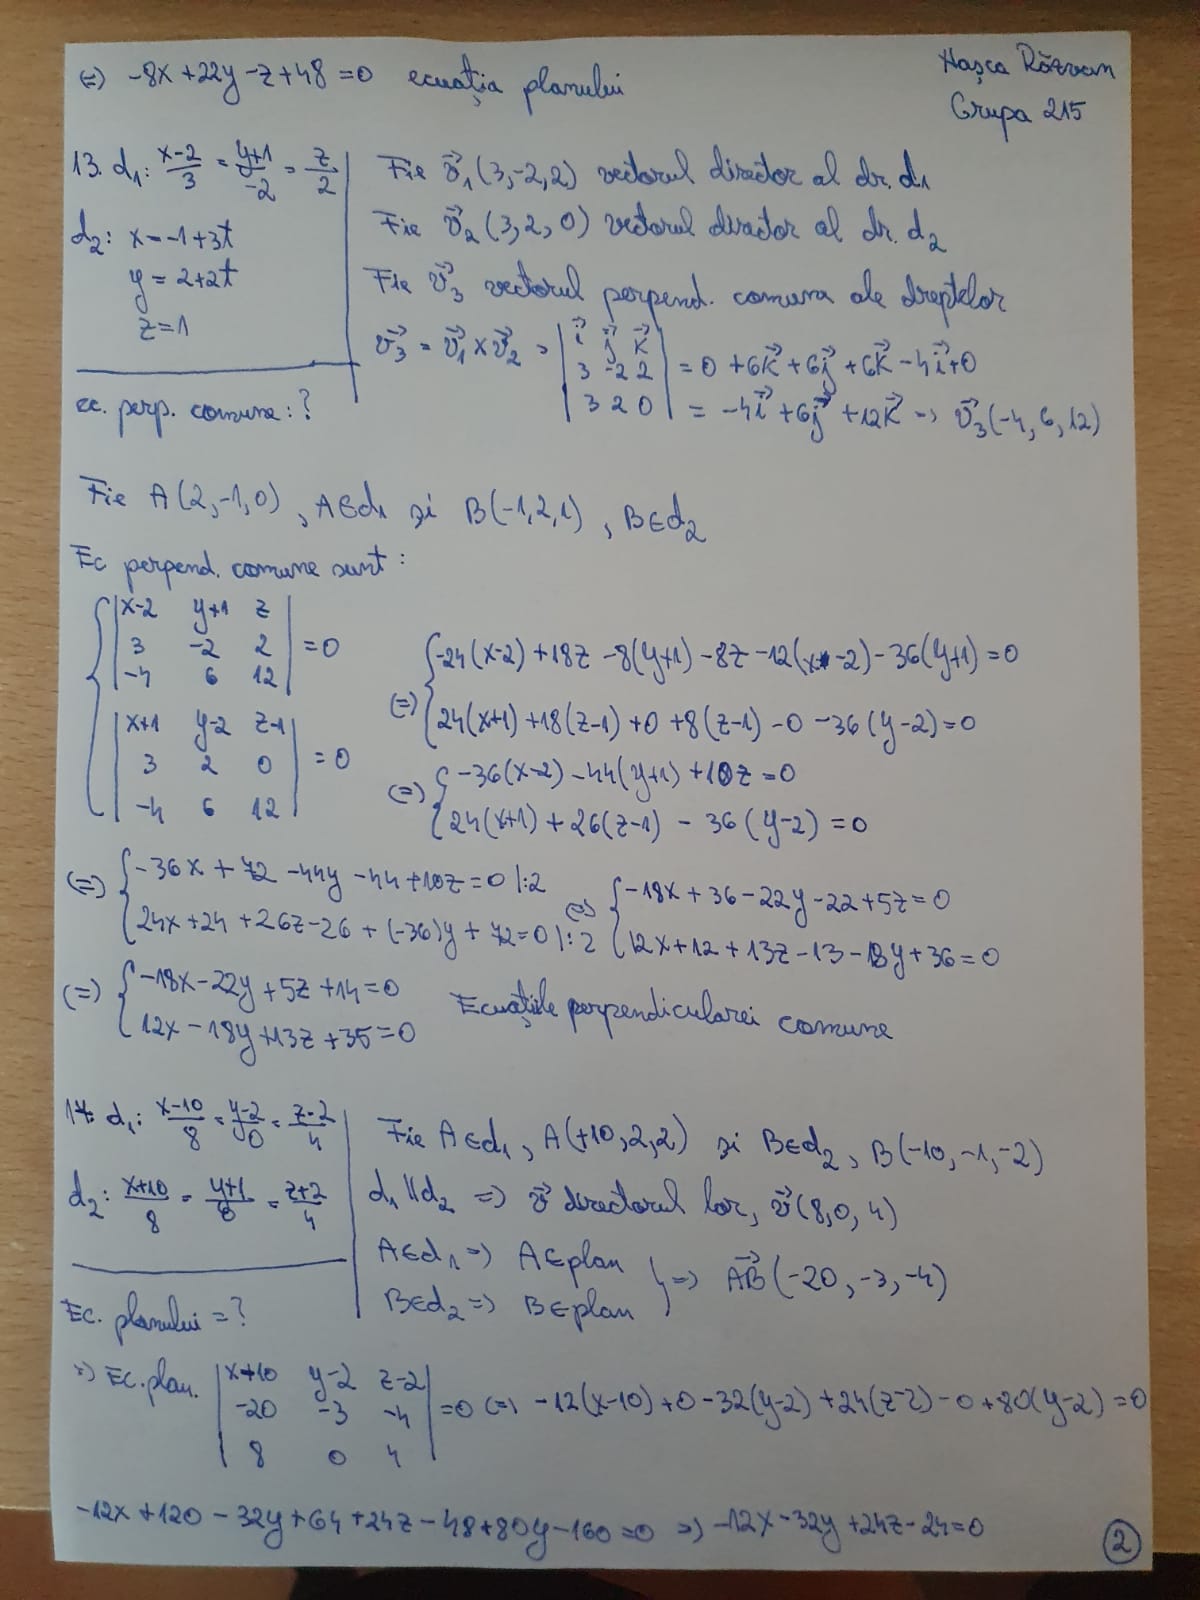 (=) -8x+22y-z+48=0 ecuația planului
Hașca Răzvan
Grupa 215
13. d₁: (x-2)/3 = (y+1)/-2 = z/2
d₂: x=-1+3t
y=2+2t
z=1
ec. perp. comune: ?
Fie v⃗₁(3,-2,2) vectorul director al dr. d₁
Fie v⃗₂(3,2,0) vectorul director al dr. d₂
Fie v⃗₃ vectorul perpend. comuna ale dreptelor
v⃗₃ = v⃗₁ x v⃗₂ = | i⃗ j⃗ k⃗ |
| 3 -2 2 | = 0 + 6k⃗ + 6j⃗ + 6k⃗ - 4i⃗ + 0
| 3 2 0 | = -4i⃗ + 6j⃗ + 12k⃗ => v⃗₃(-4, 6, 12)
Fie A(2,-1,0), A∈d₁ și B(-1,2,1), B∈d₂
Ec perpend. comune sunt:
| x-2 y+1 z |
| 3 -2 2 | = 0
| -4 6 12 |
| x+1 y-2 z-1 |
| 3 2 0 | = 0
| -4 6 12 |
(=) { -24(x-2)+18z-8(y+1)-8z-12(x-2)-36(y+1)=0
24(x+1)+18(z-1)+0+8(z-1)-0-36(y-2)=0
(=) { -36(x-2)-44(y+1)+10z=0
24(x+1)+26(z-1)-36(y-2)=0
(=) { -36x+72-44y-44+10z=0 |:2
24x+24+26z-26+(-36)y+72=0 |:2
(=) { -18x+36-22y-22+5z=0
12x+12+13z-13-18y+36=0
(=) { -18x-22y+5z+14=0
12x-18y+13z+35=0
Ecuațiile perpendicularei comune
14. d₁: (x-10)/8 = (y-2)/0 = (z-2)/4
d₂: (x+10)/8 = (y+1)/0 = (z+2)/4
Ec. planului = ?
Fie A∈d₁, A(+10,2,2) și B∈d₂, B(-10,-1,-2)
d₁ || d₂ => v⃗ directorul lor, v⃗(8,0,4)
A∈d₁ => A∈plan
B∈d₂ => B∈plan } => AB⃗(-20,-3,-4)
=) Ec. plan. | x+10 y-2 z-2 |
| -20 -3 -4 | =0 (=) -12(x-10)+0-32(y-2)+24(z-2)-0+80(y-2)=0
| 8 0 4 |
-12x+120-32y+64+24z-48+80y-160=0 =) -12x-32y+24z-24=0
2